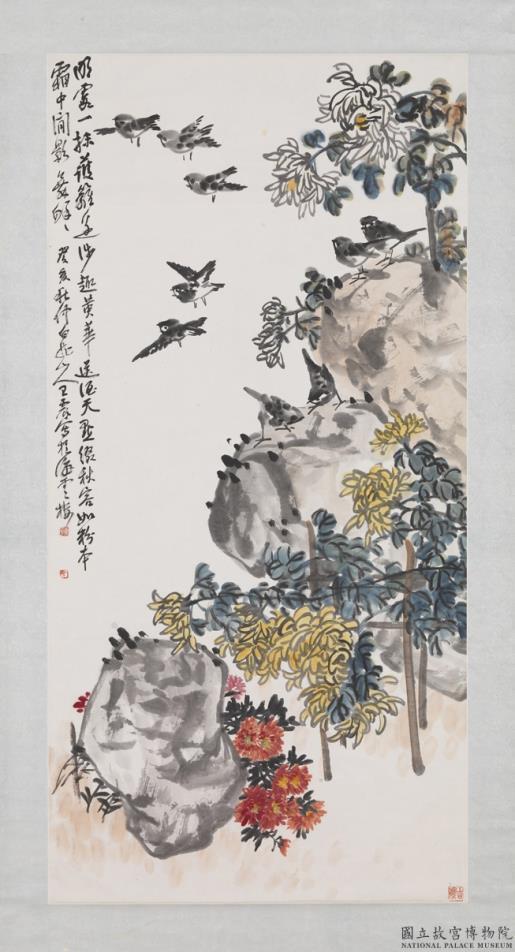 明霞一抹護籬邊涉趣黃華送酒天點綴秋容如粉本
霜中閒影最鮮〻 癸亥秋仲白龍山人王震寫於海雲樓
國立故宮博物院
NATIONAL PALACE MUSEUM